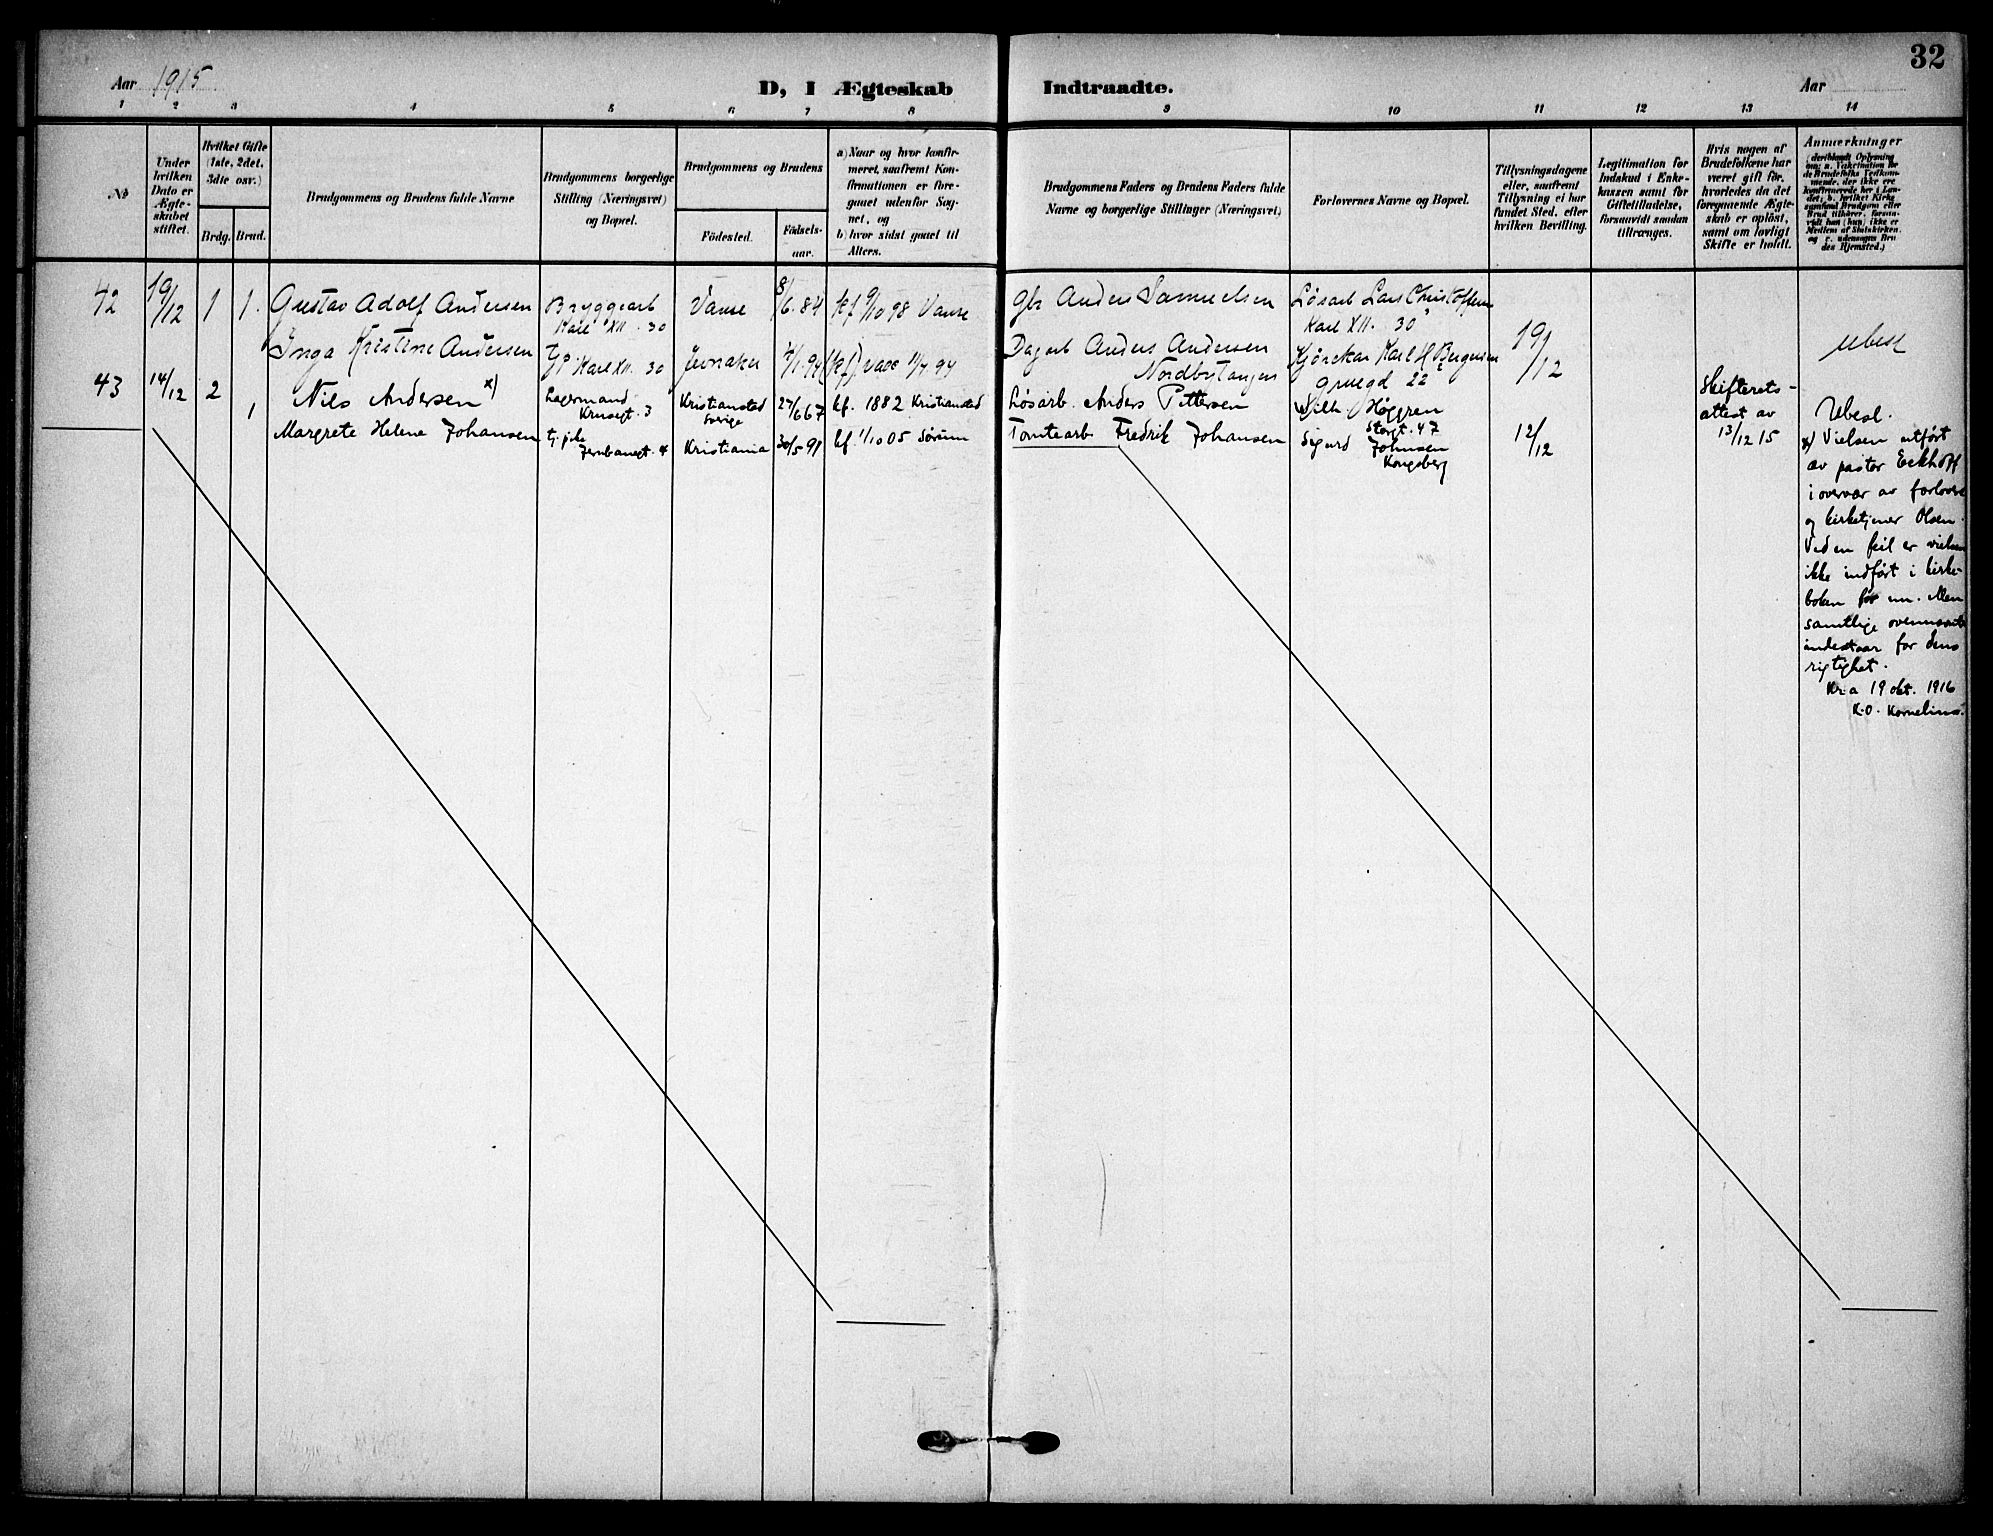 32
Aar 1915
D, I Ægteskab Indtraadte.
Aar
1 2 3 4 5 6 7 8 9 10 11 12 13 14
№
Under hvilken Dato er Ægteskabet stiftet.
Hvilket Gifte (1ste, 2det, 3dte osv.)
Brdg. Brud.
Brudgommens og Brudens fulde Navne
Brudgommens borgerlige Stilling (Næringsvei) og Bopæl.
Brudgommens og Brudens
Födested. Födselsaar.
a) Naar og hvor konfirmeret, saafremt Konfirmationen er foregaaet udenfor Sognet, og
b) hvor sidst gaaet til Alters.
Brudgommens Faders og Brudens Faders fulde Navne og borgerlige Stillinger (Næringsvei)
Forlovernes Navne og Bopæl.
Tillysningsdagene eller, saafremt Tillysning ei har fundet Sted, efter hvilken Bevilling.
Legitimation for Indskud i Enkekassen samt for Giftetilladelse, forsaavidt saadan tiltrænges.
Hvis nogen af Brudefolkene har været gift før, hvorledes da det foregaaende Ægteskab er opløst, samt om lovligt Skifte er holdt.
Anmærkninger
(deriblandt Oplysning om: a. Vakcination for de Brudefolks Vedkommende, der ikke ere konfirmerede her i Landet; b. hvilket Kirkesamfund Brudgom eller Brud tilhører, forsaavidt han (hun) ikke er Medlem af Statskirken, og c. udensogns Brudes Hjemsted.)
42 19/12 1 1. Gustav Adolf Andersen Bryggearb Karl XII. 30 Vanse 8/6.84 kf 9/10 98 Vanse. gbr Anders Samuelsen Løsarb Lars Christoffersen Karl XII. 30
Inga Kristine Andersen Tjp. Karl XII. 30 Jevnaker Dagarb Anders Andersen Nordbytangen Karl H Bergersen gruegd 22 19/12 Ubesl
43 14/12 2 1 Nils Andersen x) Lagermand Krusegt. 3 Kristianstad Sverige 27/6 67 kf. 1882 Kristianstad Løsarb. Anders Pettersen Wilh. Høggren Storgt. 47 Skifteretsattest av 13/12 15 Ubesl.
Margrete Helene Johansen tj. pike Jernbanegt. 4 Kristiania 30/5 91 kf. 1/10 05 Sørum Tomtearb Fredrik Johansen Sigurd Johnsen Kongsberg 12/12
x) Vielsen utført
av pastor Eckhoff
i overvær av forlovere
og kirketjener Olsen.
Ved en feil er vielsen
ikke indført i kirke-
boken før nu. Men
samtlige ovennævnte
indestaar for dens
rigtighet.
Kr.a 19 okt. 1916
K.O. Kornelius.